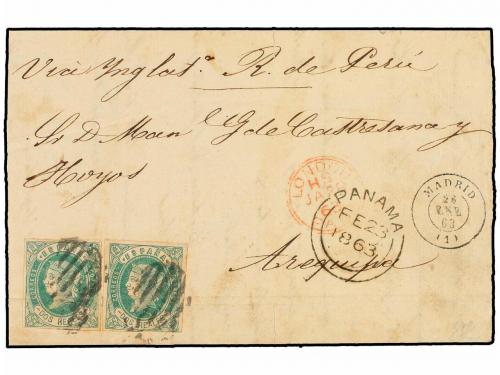 Via Inglat.ª R. de Perú
Sr D. Man.l G de Cattresana y
Hoyos
LONDON
PANAMA
FE 23
1863
MADRID
26
ENE
63
(1)
Arequipa
CORREOS
DOS REALES
CORREOS
DOS REALES